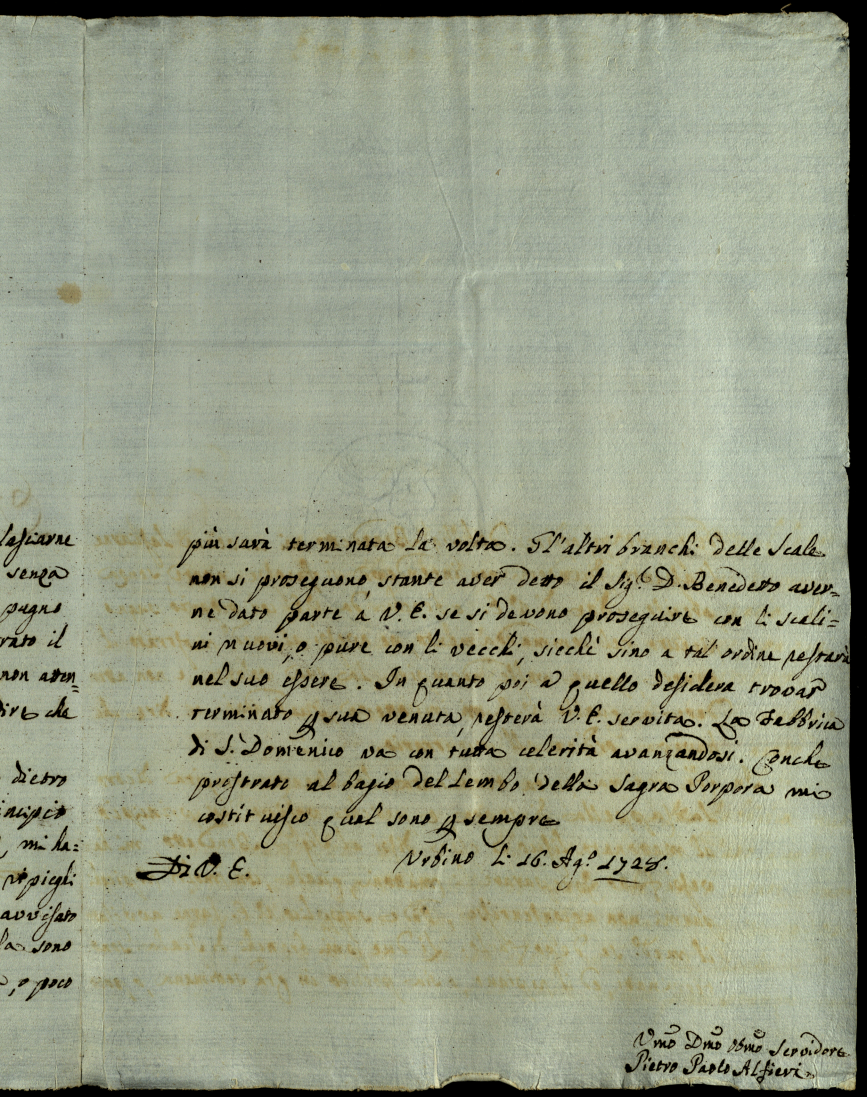 lasciarne
senza
pugno
rato il
non atten=
dire che
dietro
incipio
, mi ha=
ripieghi
avvisato
la sono
, o poco
più sarà terminata la volta. Gl'altri branchi delle Scale
non si proseguono, stante aver detto il Sigr. D. Benedetto aver=
ne dato parte à V. E. se si devono proseguire con li scali=
ni nuovi, o pure con li vecchi, sicchè sino a tal ordine restarà
nel suo essere. In quanto poi a quello desidera trovar
terminato p sua venuta, resterà V. E. servita. La Fabbrica
di S. Domenico va con tutta celerità avanzandosi. Con che
prostrato al bagio del Lembo della Sagra Porpora mi
costituisco qual sono p sempre
Di V. E. Urbino li 16. Ago. 1728.
Vmo Dmo Obmo Servidore
Pietro Paolo Alfieri